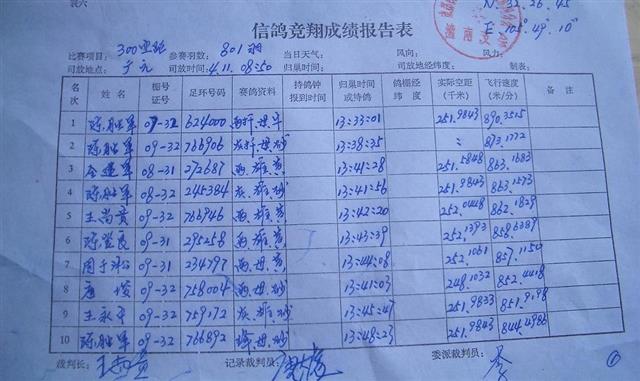 表六
N: 32°26'45"
E: 105°49'10"
信鸽竞翔成绩报告表
比赛项目: 300公里 参赛羽数: 801羽 当日天气: 风向: 风力:
司放地点: 广元 司放时间: 4.11.08:50 归巢时间: 司放地经纬度: 制表:
名次 姓名 棚号证号 足环号码 赛鸽资料 持鸽钟报到时间 归巢时间或持鸽 鸽棚经纬度 实际空距(千米) 飞行速度(米/分) 备注
1 陈胜军 09-32 624000 13:33:01 251.9843 890.3515
2 陈胜军 09-32 766906 灰.雌.砂 13:38:35 〃 873.1772
3 09-31 272687 雨.雄.黄 13:41:28 251.5848 863.1683
4 陈胜军 09-32 245384 灰.雄.砂 13:41:56 251.9843 863.1573
5 王尚贵 09-32 766946 灰.雄.黄 13:42:20 252.0448 862.1829
6 09-31 295258 雨.雄.黄 13:43:39 252.1393 858.6389
7 09-31 234797 雨.雌.黄 13:44:08 252.1061 857.1150
8 唐俊 09-32 758004 雨.雌.砂 13:41:03 248.1032 852.4418
9 王永平 09-32 759172 灰.雄.砂 13:45:47 251.9833 851.9198
10 陈胜军 09-32 766892 13:48:23 251.9843 844.4986
裁判长: 记录裁判员: 委派裁判员:
①